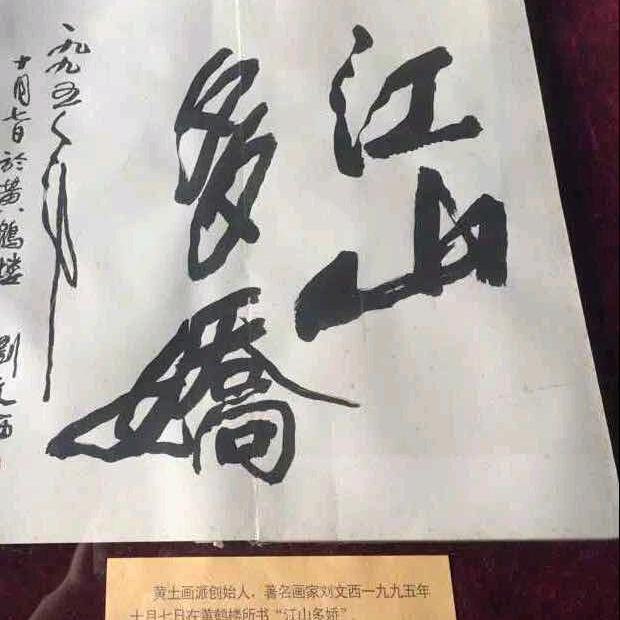 江山
多嬌
一九九五年
十月七日於黄鶴楼 劉文西
黄土画派创始人、著名画家刘文西一九九五年
十月七日在黄鹤楼所书“江山多娇”